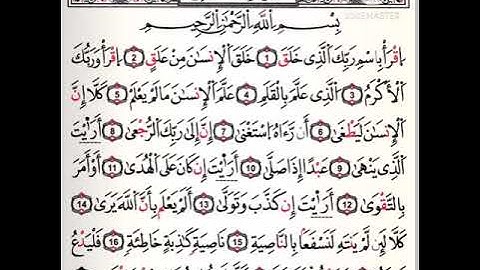 بِسْمِ ٱللَّهِ ٱلرَّحْمَٰنِ ٱلرَّحِيمِ
ٱقْرَأْ بِٱسْمِ رَبِّكَ ٱلَّذِى خَلَقَ ١ خَلَقَ ٱلْإِنسَٰنَ مِنْ عَلَقٍ ٢ ٱقْرَأْ وَرَبُّكَ
ٱلْأَكْرَمُ ٣ ٱلَّذِى عَلَّمَ بِٱلْقَلَمِ ٤ عَلَّمَ ٱلْإِنسَٰنَ مَا لَمْ يَعْلَمْ ٥ كَلَّآ إِنَّ
ٱلْإِنسَٰنَ لَيَطْغَىٰٓ ٦ أَن رَّءَاهُ ٱسْتَغْنَىٰٓ ٧ إِنَّ إِلَىٰ رَبِّكَ ٱلرُّجْعَىٰٓ ٨ أَرَءَيْتَ
ٱلَّذِى يَنْهَىٰ ٩ عَبْدًا إِذَا صَلَّىٰٓ ١٠ أَرَءَيْتَ إِن كَانَ عَلَى ٱلْهُدَىٰٓ ١١ أَوْ أَمَرَ
بِٱلتَّقْوَىٰٓ ١٢ أَرَءَيْتَ إِن كَذَّبَ وَتَوَلَّىٰٓ ١٣ أَلَمْ يَعْلَم بِأَنَّ ٱللَّهَ يَرَىٰ ١٤
كَلَّا لَئِن لَّمْ يَنتَهِ لَنَسْفَعًۢا بِٱلنَّاصِيَةِ ١٥ نَاصِيَةٍ كَٰذِبَةٍ خَاطِئَةٍ ١٦ فَلْيَدْعُ